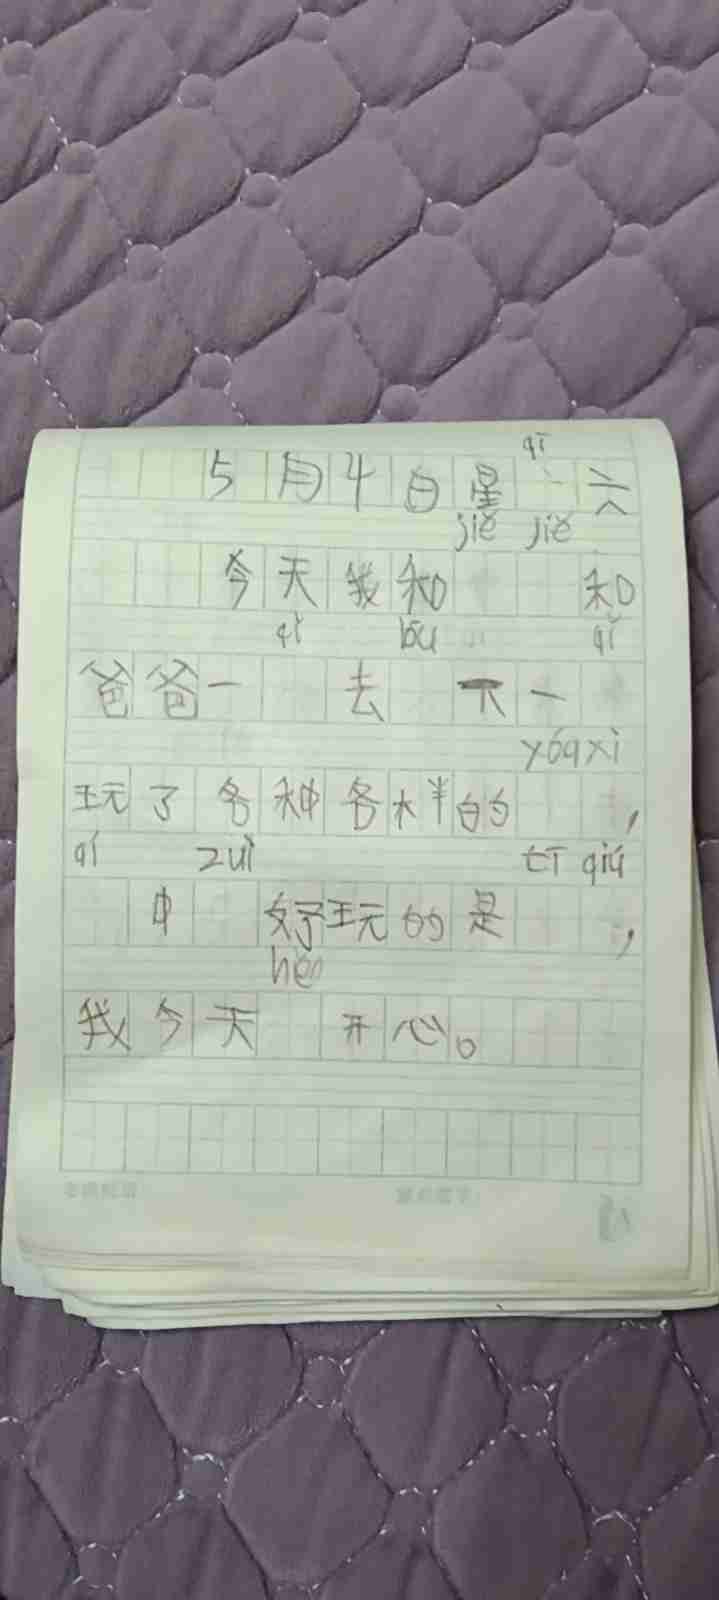 qī
5月4日星 六
jiě jiě
今天我和 和
qǐ bù qǐ
爸爸一 去 一
yóu xì
玩了各种各样的 ,
qí zuì tī qiú
中 好玩的是 ,
hěn
我今天 开心。